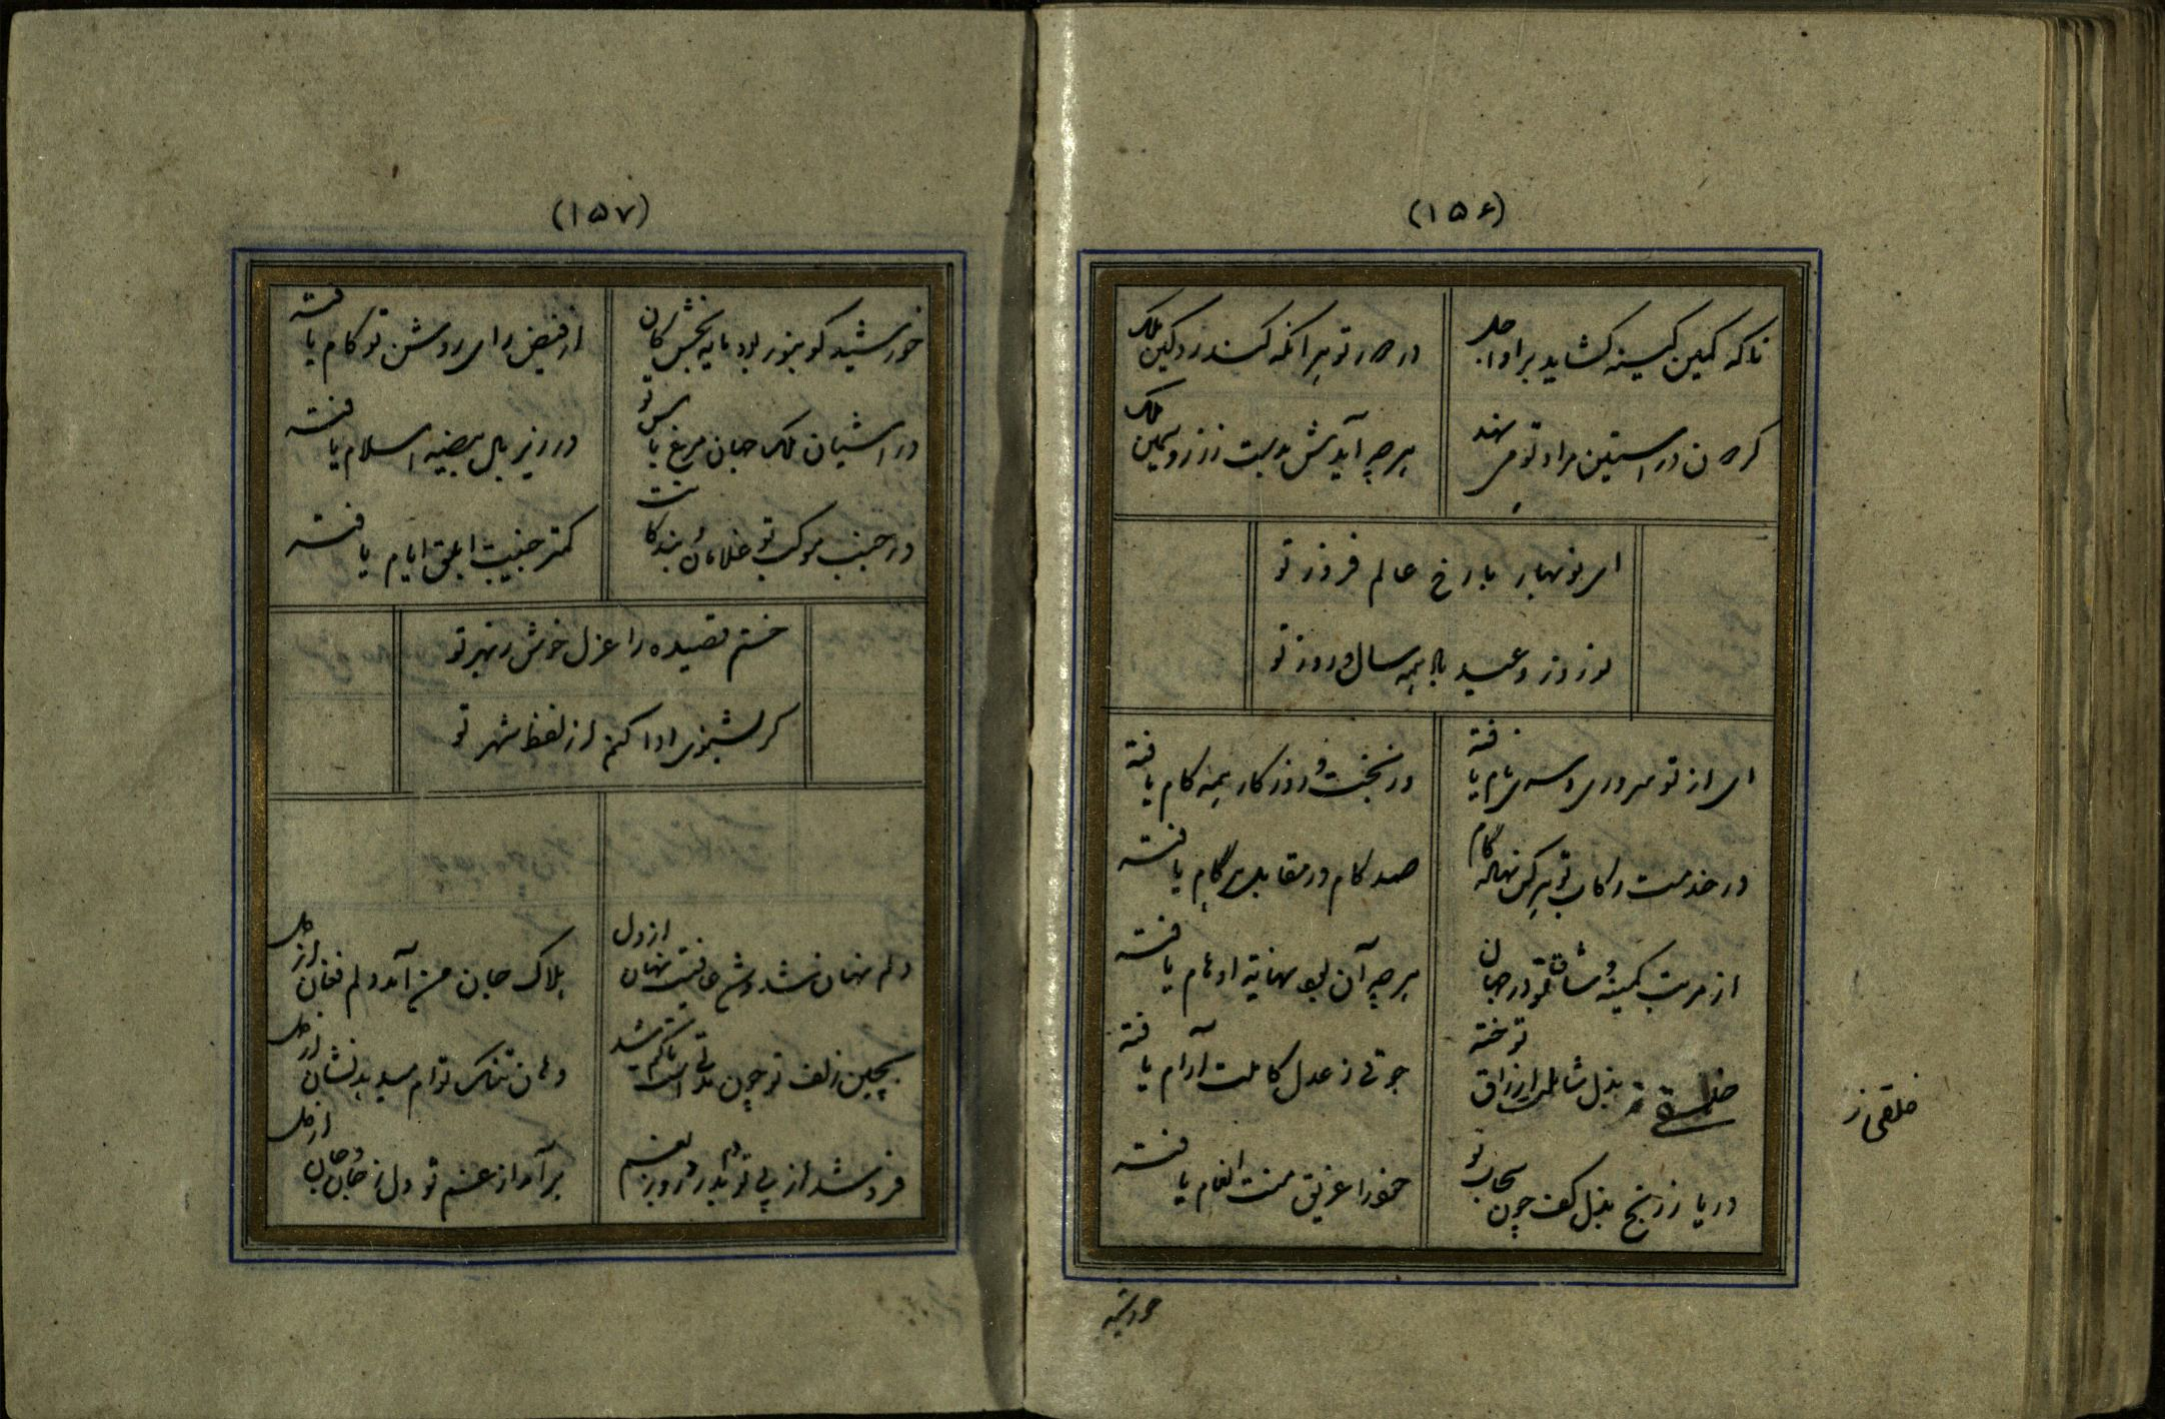 (۱۵۶)
ناگه کمین کینه گشاید بر او اجل
در دور تو هر آنکه کند رو بکین ملک
گردن در آستین مراد تو می نهد
هر چه آیدش بدست ز زر و سیمین ملک
ای نوبهار با رخ عالم فروز تو
نوروز و عید باد همه سال و روز تو
ای از تو سروری و سهی نام یافته
در بخت و روزگار همه کام یافته
در خدمت رکاب تو هر کس نهاد گام
صد کام در مقابل هر گام یافته
از مرتبت کمینه وشاق تو در جهان
هر چه آن بود نهایت اوهام یافته
بذل شامل ارزاق توخته
جوقی ز عدل کاملت آرام یافته
خلقی ز
دریا ز رنج بذل کف چون سحاب تو
خود را غریق منت انعام یافته
خورشید
(۱۵۷)
خورشید کو بنور بود مایه بخش کان
از فیض رای روشن تو کام یافته
در آشیان ملک جهان مرغ باس تو
در زیر بال بیضه اسلام یافته
در جنب موکب تو غلامان بندگانت
کمتر جنیبت ابلق ایام یافته
ختم قصیده را غزل خوش ز بهر تو
گر بشنوی ادا کنم از لفظ شهر تو
دلم نهان شد و شخ عاقبت نهان از دل
هلاک جان من آمد دلم فغان از دل
بچین زلف تو چون مدتی است تا گم شد
دهان تنگ توام میدهد نشان از دل
فرو شد از پی تو
برآمد از غم تو دل ز جان و جان از دل